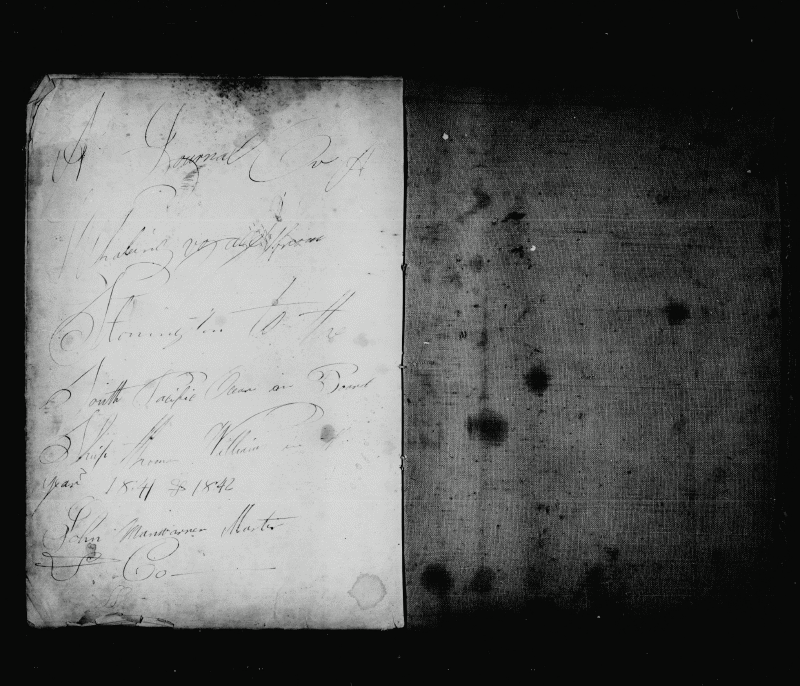 A Journal of a
Whaling voyage from
Stonington to the
South Pacific Ocean on Board
Ship Thomas Williams in
year 1841 & 1842
John Manwarren Master
& Co